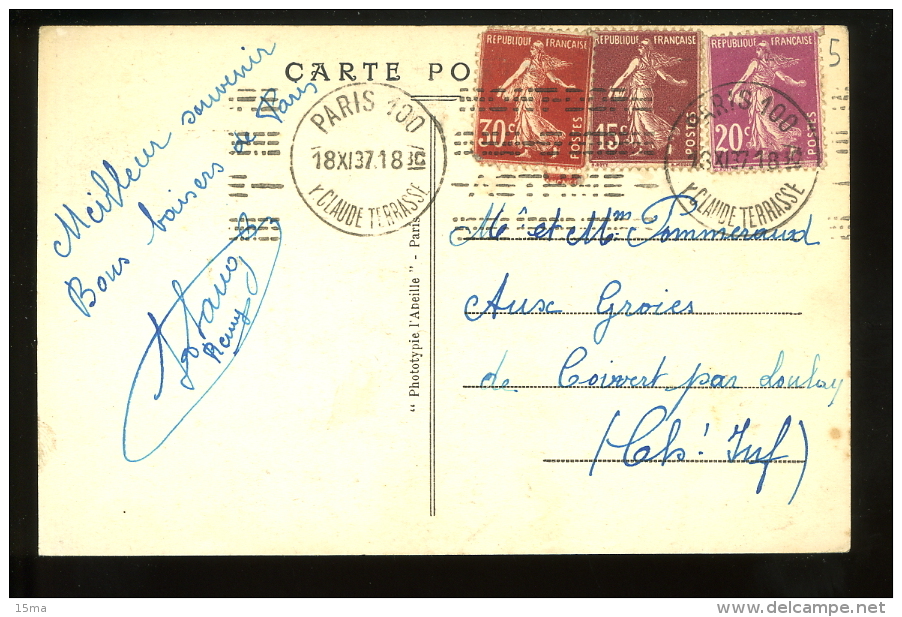 CARTE PO
Meilleur souvenir
Bons baisers de Paris
Remy
PARIS 100
18XI37.18 30
R CLAUDE TERRASSE
REPUBLIQUE FRANÇAISE
30c
POSTES
REPUBLIQUE FRANÇAISE
15c
POSTES
REPUBLIQUE FRANÇAISE
20c
POSTES
PARIS 100
18XI37.18 30
R CLAUDE TERRASSE
5
Mr et Mme Pommeraud
Aux Groies
de Coivert par Loulay
(Chte Inf)
" Phototypie l'Abeille " - Paris
15ma
delcampe.net